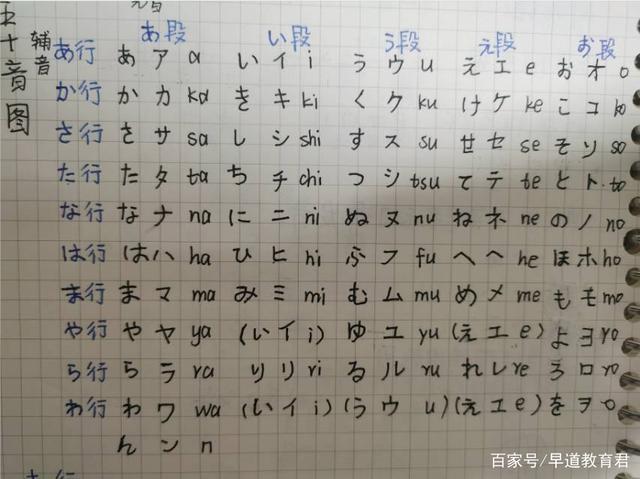 五十音图
辅音
あ段 い段 う段 え段 お段
あ行 あ ア a い イ i う ウ u え エ e お オ o
か行 か カ ka き キ ki く ク ku け ケ ke こ コ ko
さ行 さ サ sa し シ shi す ス su せ セ se そ ソ so
た行 た タ ta ち チ chi つ シ tsu て テ te と ト to
な行 な ナ na に ニ ni ぬ ヌ nu ね ネ ne の ノ no
は行 は ハ ha ひ ヒ hi ふ フ fu へ ヘ he ほ ホ ho
ま行 ま マ ma み ミ mi む ム mu め メ me も モ mo
や行 や ヤ ya (い イ i) ゆ ユ yu (え エ e) よ ヨ yo
ら行 ら ラ ra り リ ri る ル ru れ レ re ろ ロ ro
わ行 わ ワ wa (い イ i) (う ウ u) (え エ e) を ヲ o
ん ン n
百家号/早道教育君